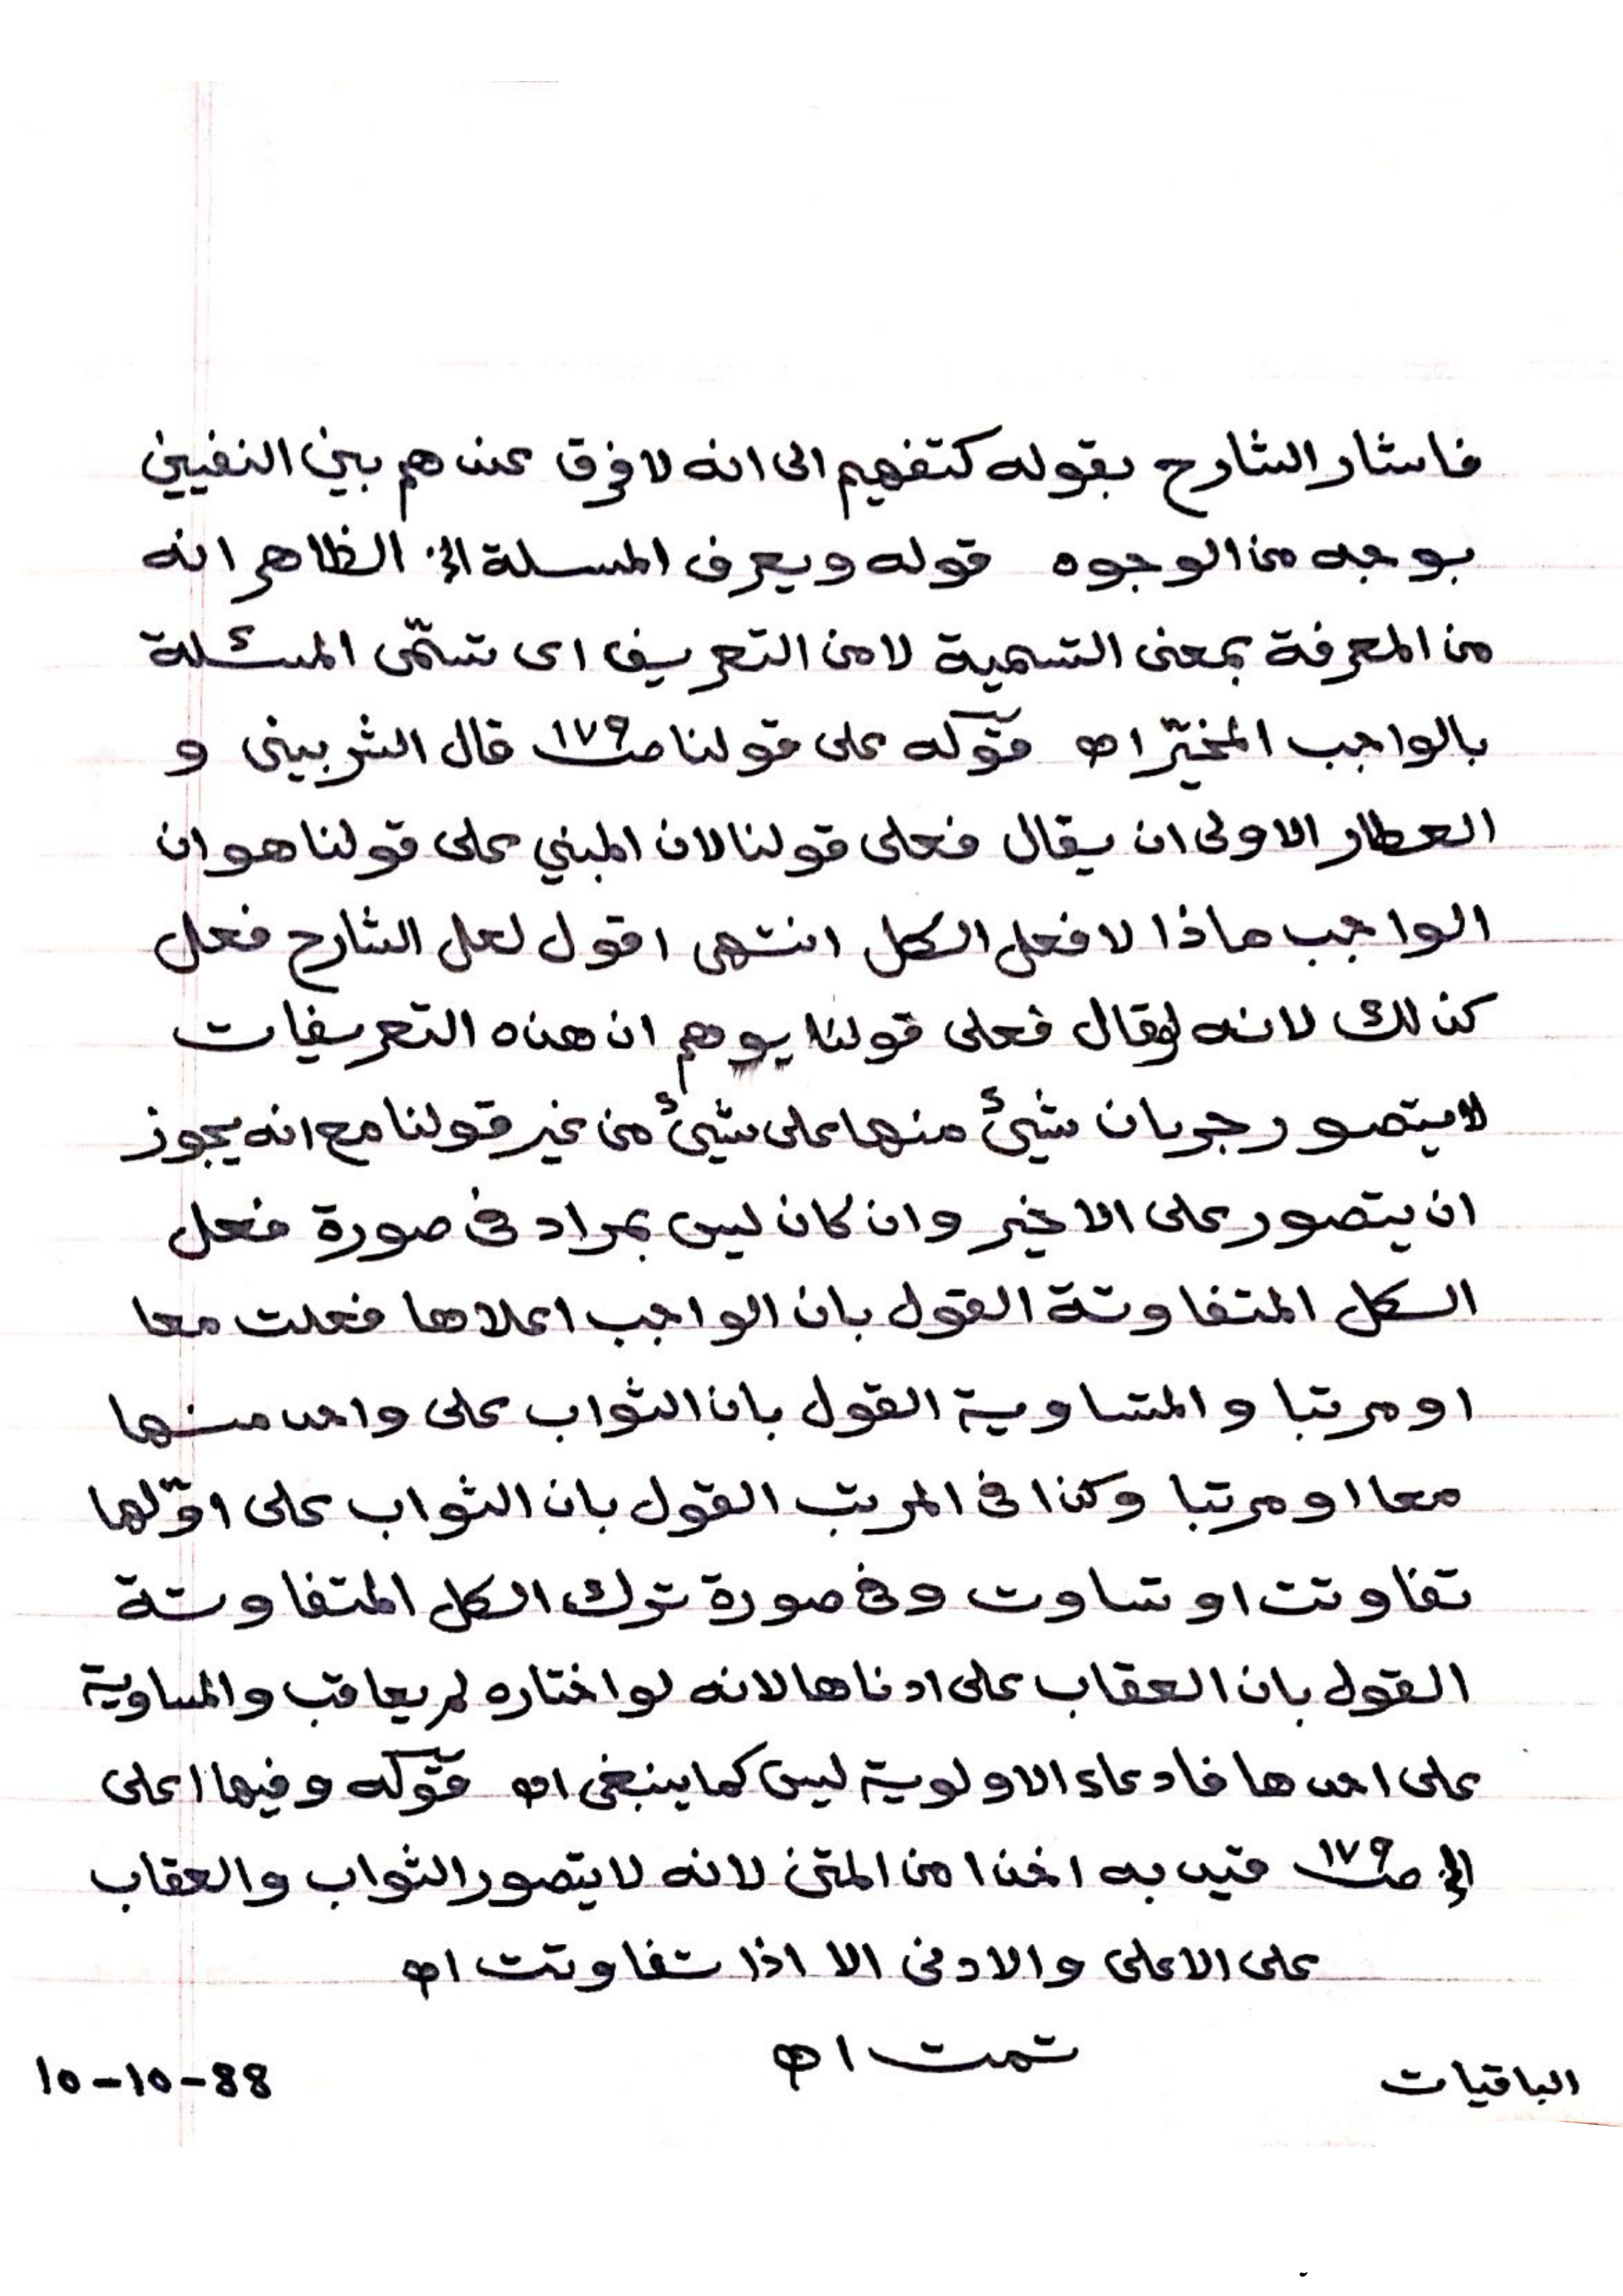 فاشار الشارح بقوله كتفهيم الى انه لا فرق عندهم بين النفيين
بوجه من الوجوه قوله ويعرف المسئلة الخ الظاهر انه
من المعرفة بمعنى التسمية لا من التعريف اى تسمّى المسئلة
بالواجب المخيّر اه قوله على قولنا صـ١٧٩ قال الشربينى و
العطار الاولى ان يقال فعلى قولنا لان المبني على قولنا هو ان
الواجب ماذا لا فعل الكل انتهى اقول لعل الشارح فعل
كذلك لانه لو قال فعلى قولنا يوهم ان هذه التعريفات
لا يتصور جريان شيئ منها على شيئ من غير قولنا مع انه يجوز
ان يتصور على الاخير وان كان ليس بمراد فى صورة فعل
الكل المتفاوتة القول بان الواجب اعلاها فعلت معا
او مرتبا والمتساوية القول بان الثواب على واحد منها
معا او مرتبا وكذا فى المرتب القول بان الثواب على اوّلها
تفاوتت او تساوت وفى صورة ترك الكل المتفاوتة
القول بان العقاب على ادناها لانه لو اختاره لم يعاقب والمساوية
على احدها فادعاء الاولوية ليس كما ينبغى اه قوله وفيها اعلى
الخ صـ١٧٩ قيد به اخذا من المتن لانه لا يتصور الثواب والعقاب
على الاعلى والادنى الا اذا تفاوتت اه
تمت اه
الباقيات
10-10-88